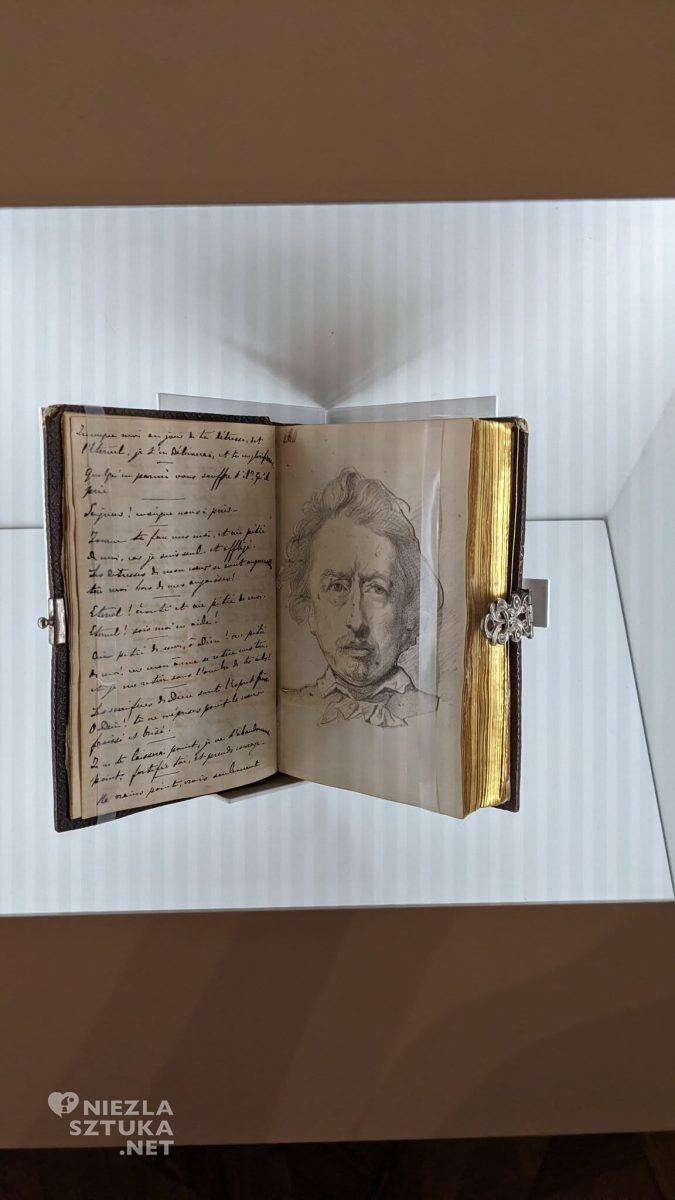 Invoque moi au jour de ta détresse, dit
l'Eternel, je t'en délivrerai, et tu me glorifieras
Quelqu'un parmi vous souffre-t-il? qu'il
prie
Seigneur! enseigne nous à prier-
Tourne ta face vers moi, et aie pitié
de moi, car je suis seul et affligé.
Les détresses de mon cœur se sont augmentées
tire moi hors de mes angoisses!
Eternel! écoute et aie pitié de moi.
Eternel! sois moi en aide!
Aie pitié de moi, ô Dieu! aie pitié
de moi; car mon âme se retire vers toi,
et je me retire sous l'ombre de tes ailes!
Les sacrifices de Dieu sont l'esprit froissé
O Dieu! tu ne méprises point le cœur
froissé et brisé!
Je ne te laisserai point, je ne t'abandonnerai
point, fortifie toi, et prends courage-
Ne crains point, crois seulement
NIEZLA
SZTUKA
.NET